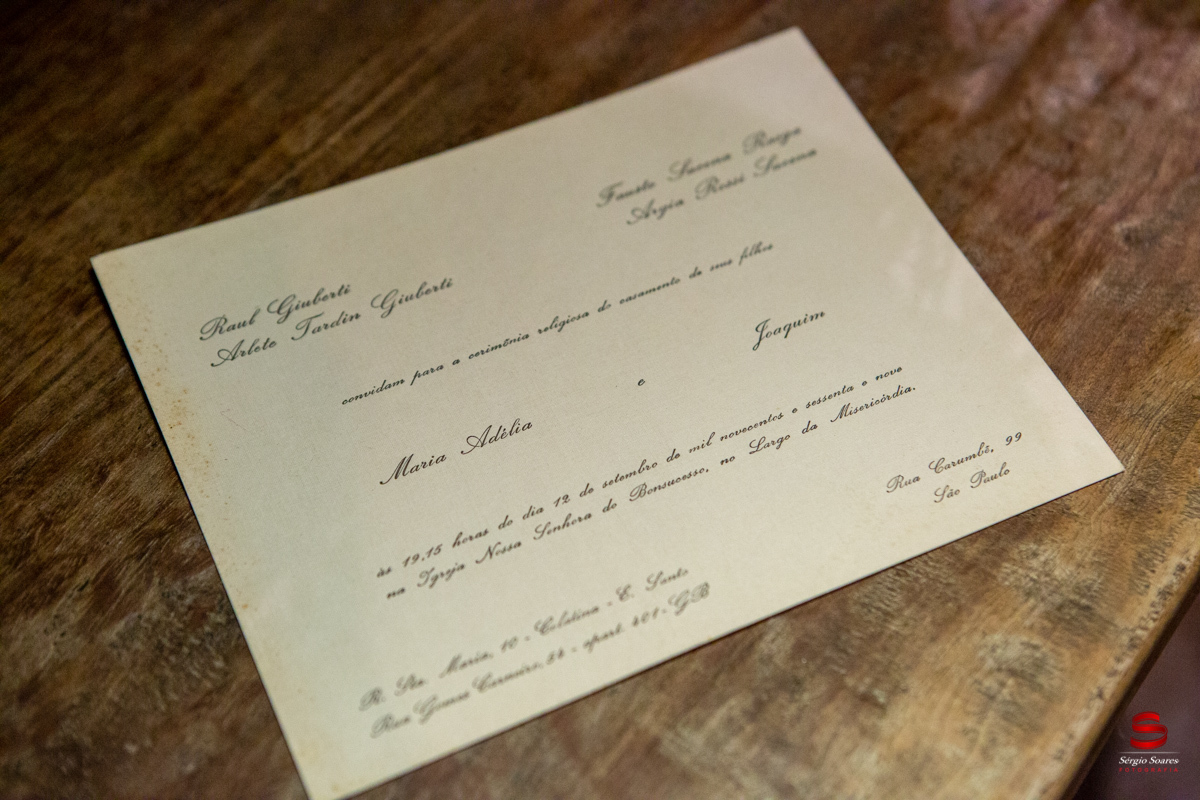 Raul Giuberti
Arlete Tardin Giuberti
Fausto Lucena
Argia Rossi Lucena
convidam para a cerimônia religiosa do casamento de seus filhos
Maria Adélia
e
Joaquim
às 19,15 horas do dia 12 de setembro de mil novecentos e sessenta e nove
na Igreja Nossa Senhora do Bonsucesso, no Largo da Misericórdia.
R. Sta. Maria, 10 - Colatina - E. Santo
Rua Gomes Carneiro, - apart. 401 - GB
Rua Carumbé, 99
São Paulo
Sérgio Soares
FOTOGRAFIA